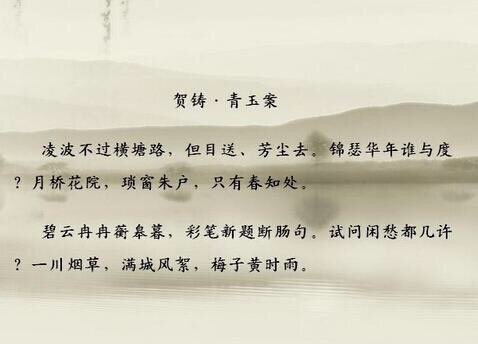 贺铸·青玉案
凌波不过横塘路，但目送、芳尘去。锦瑟华年谁与度
？月桥花院，琐窗朱户，只有春知处。
碧云冉冉蘅皋暮，彩笔新题断肠句。试问闲愁都几许
？一川烟草，满城风絮，梅子黄时雨。